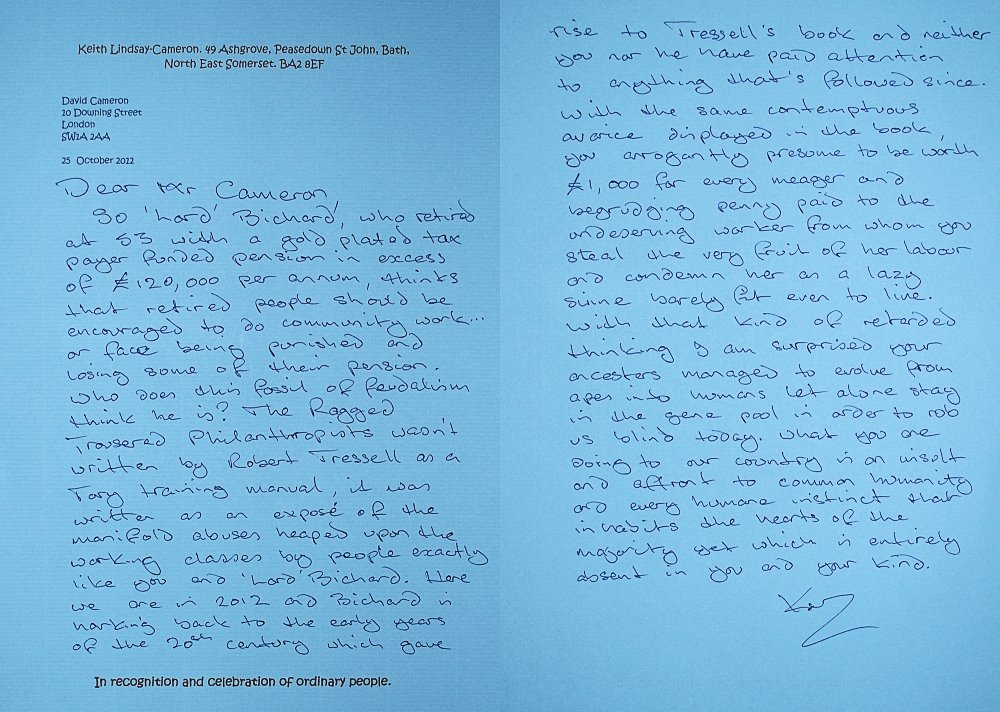 Keith Lindsay-Cameron. 49 Ashgrove, Peasedown St John, Bath,
North East Somerset. BA2 8EF
David Cameron
10 Downing Street
London
SW1A 2AA
25 October 2012
Dear Mr Cameron
So 'Lord' Bichard, who retired
at 53 with a gold plated tax
payer funded pension in excess
of £120,000 per annum, thinks
that retired people should be
encouraged to do community work...
or face being punished and
losing some of their pension.
Who does this fossil of feudalism
think he is? The Ragged
Trousered Philanthropists wasn't
written by Robert Tressell as a
Tory training manual, it was
written as an exposé of the
manifold abuses heaped upon the
working classes by people exactly
like you and 'Lord' Bichard. Here
we are in 2012 and Bichard is
harking back to the early years
of the 20th century which gave
In recognition and celebration of ordinary people.
rise to Tressell's book and neither
you nor he have paid attention
to anything that's followed since.
With the same contemptuous
avarice displayed in the book,
you arrogantly presume to be worth
£1,000 for every meager and
begrudging penny paid to the
undeserving worker from whom you
steal the very fruit of her labour
and condemn her as a lazy
swine barely fit even to live.
With that kind of retarded
thinking I am surprised your
ancesters managed to evolve from
apes into humans let alone stay
in the gene pool in order to rob
us blind today. What you are
doing to our country is an insult
and affront to common humanity
and every humane instinct that
inhabits the hearts of the
majority yet which is entirely
absent in you and your kind.